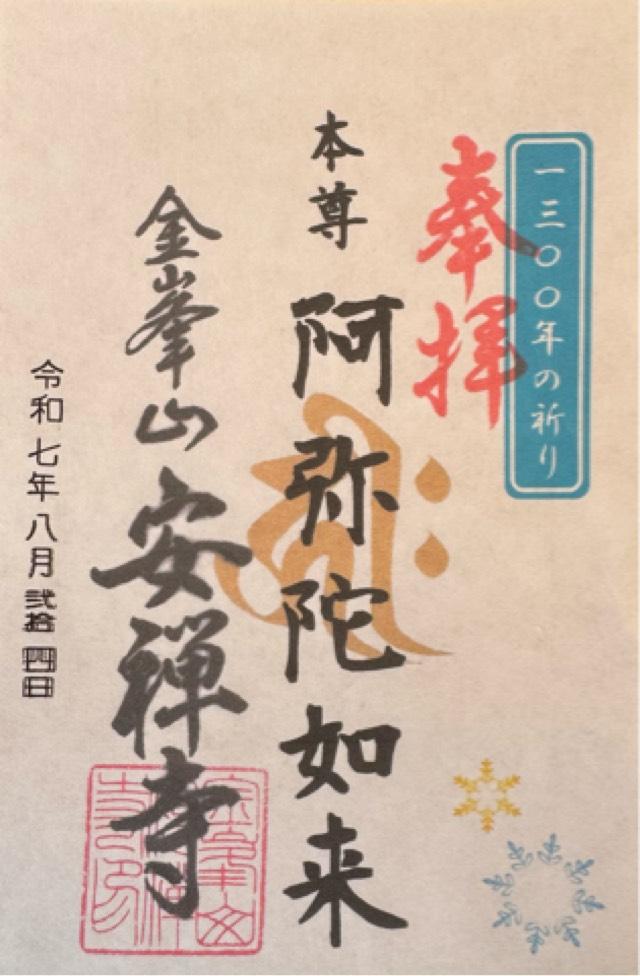 一三〇〇年の祈り
奉拝
本尊 阿弥陀如来
金峯山 安禅寺
令和七年八月弐拾四日